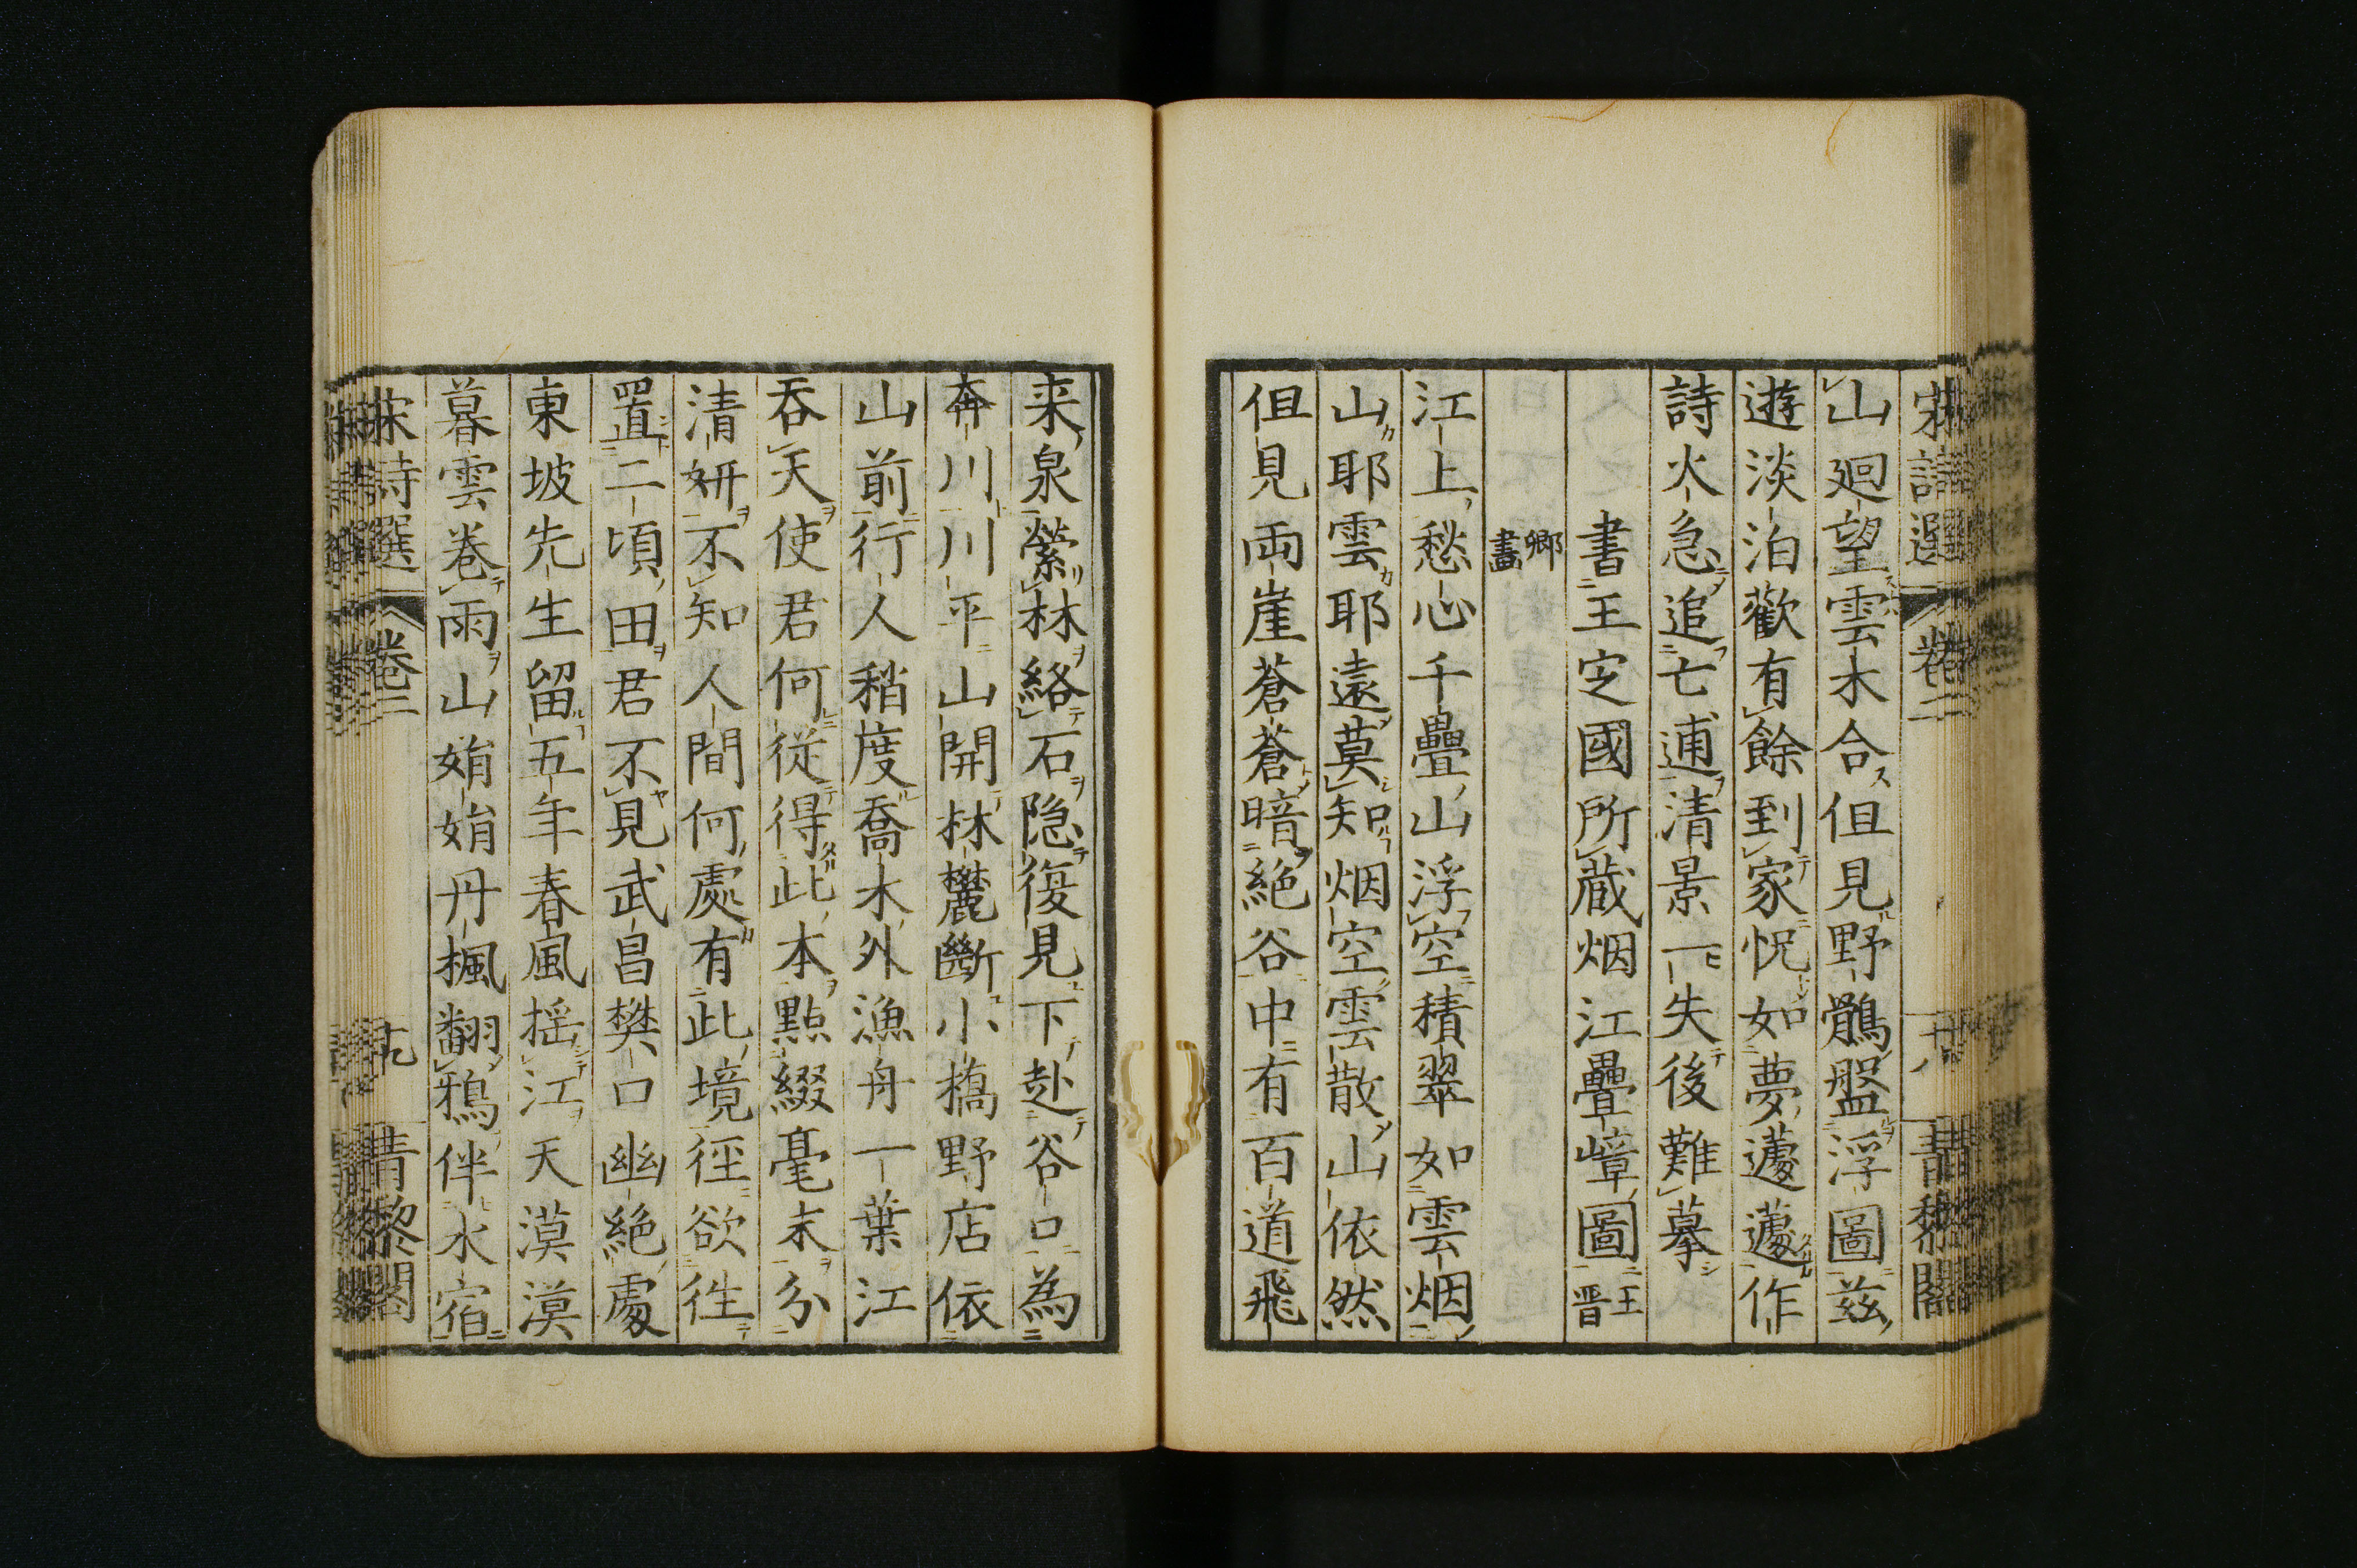 宋詩選 卷二 十八 青藜閣
山廻望雲木合但見野鶻盤浮圖茲
遊淡泊歡有餘到家怳如夢蘧蘧作
詩火急追亡逋清景一失後難摹
書王定國所蔵烟江疊嶂圖王晋
卿畫
江上愁心千疊山浮空積翠如雲烟
山耶雲耶遠莫知烟空雲散山依然
但見兩崖蒼蒼暗絶谷中有百道飛
来泉縈林絡石隐復見下赴谷口為
奔川川平山開林麓斷小橋野店依
山前行人稍度喬木外漁舟一葉江
吞天使君何從得此本點綴毫末分
清妍不知人間何處有此境徑欲往
置二頃田君不見武昌樊口幽絶處
東坡先生留五年春風揺江天漠漠
暮雲巻雨山娟娟丹楓翻鴉伴水宿
宋詩選 卷二 十九 青藜閣